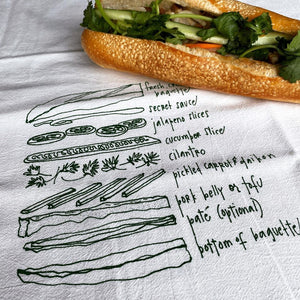 fresh
baguette
secret sauce
jalapeno slices
cucumber slice
cilantro
pickled carrot & daikon
pork belly or tofu
paté (optional)
bottom of baguette